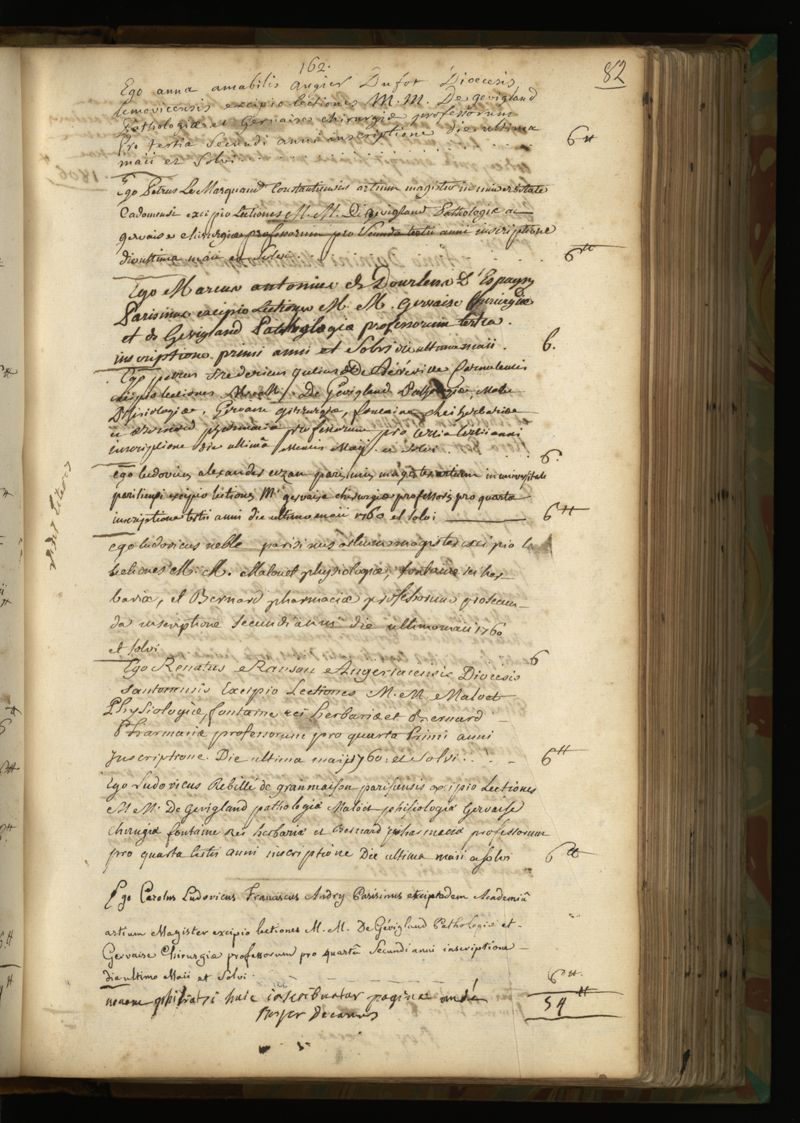 162.
82
Ego anna amabilis augier Dufot Dioecesis
Lemovicensis excipio lectiones M. M. De gevigland
Pathologiæ et Gervaise chirurgiæ professorum
Pro tertia Secundi anni inscriptione die ultima
maii et Solvi 6#
Ego Petrus Le Marquand Constantiensis artium magister in universitate
Cadomensi excipio Lectiones M. M. De gevigland Pathologiæ ac
gervaise chirurgiæ professorum pro anni inscriptione
die ultima maii et Solvi 6#
Ego Marcus antonius Dourlens D'Espagny
Parisinus excipio Lectiones M. M. Gervaise Chirurgiæ
et de Gevigland Pathologiæ professorum tertia
inscriptione primi anni et Solvi die ultima maii. 6.
Ego petrus fredericus
excipio lectiones De Gévigland Pathologiæ,
Phisiologiæ, chirurgiæ, fontaine rei herbariæ
pharmaciæ professorum pro tertia anni
inscriptione die ultima mensis Maij et Solvi 6.
Ego ludovicus alexander parisinus magister artium in universitate
parisiensi excipio lectiones Mi gervaise chirurgiæ professoris pro quarta
inscriptione tertii anni die ultimo maii 1760 et solvi 6#
ego ludovicus parisinus artium magister excipio
lectiones M. M. Malouet physiologiæ, fontaine rei her-
bariæ, et Bernard pharmaciæ professorum pro secun-
da inscriptione secundi anni die ultimo maii 1760
et solvi 6
Ego Renatus Ranson Angeriacensis Diocesis
Santonensis Excipio Lectiones M. M. Maloet
Physiologiæ, fontaine rei herbariæ et Bernard
Pharmaciæ professorum pro quarta Primi anni
Inscriptione. Die ultima maij 1760. et Solvi 6#
Ego Ludovicus Rebillé de granmaison parisiensis excipio Lectiones
M M. De Gevigland pathologiæ Maloet phisiologiæ Gervaise
chirugiæ fontaine Rei herbariæ et Bernard pharmaciæ professorum
pro quarta tertii anni inscriptione Die ultima maii et solvi 6#
Ego Carolus Ludovicus Franciscus Andry Parisinus Academiæ
artium Magister excipio lectiones M. M. De Gévigland Pathologiæ et
Gervaise Chirurgiæ professorum pro quarta Secundi anni inscriptione
die ultimo Maii et Solvi. 6#
novem philiatri huic inscribuntur paginæ
Decanus
54#